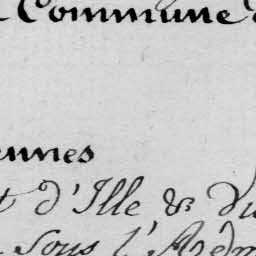 Commune
ennes
t d'Ille & Vi
sous l'Adm